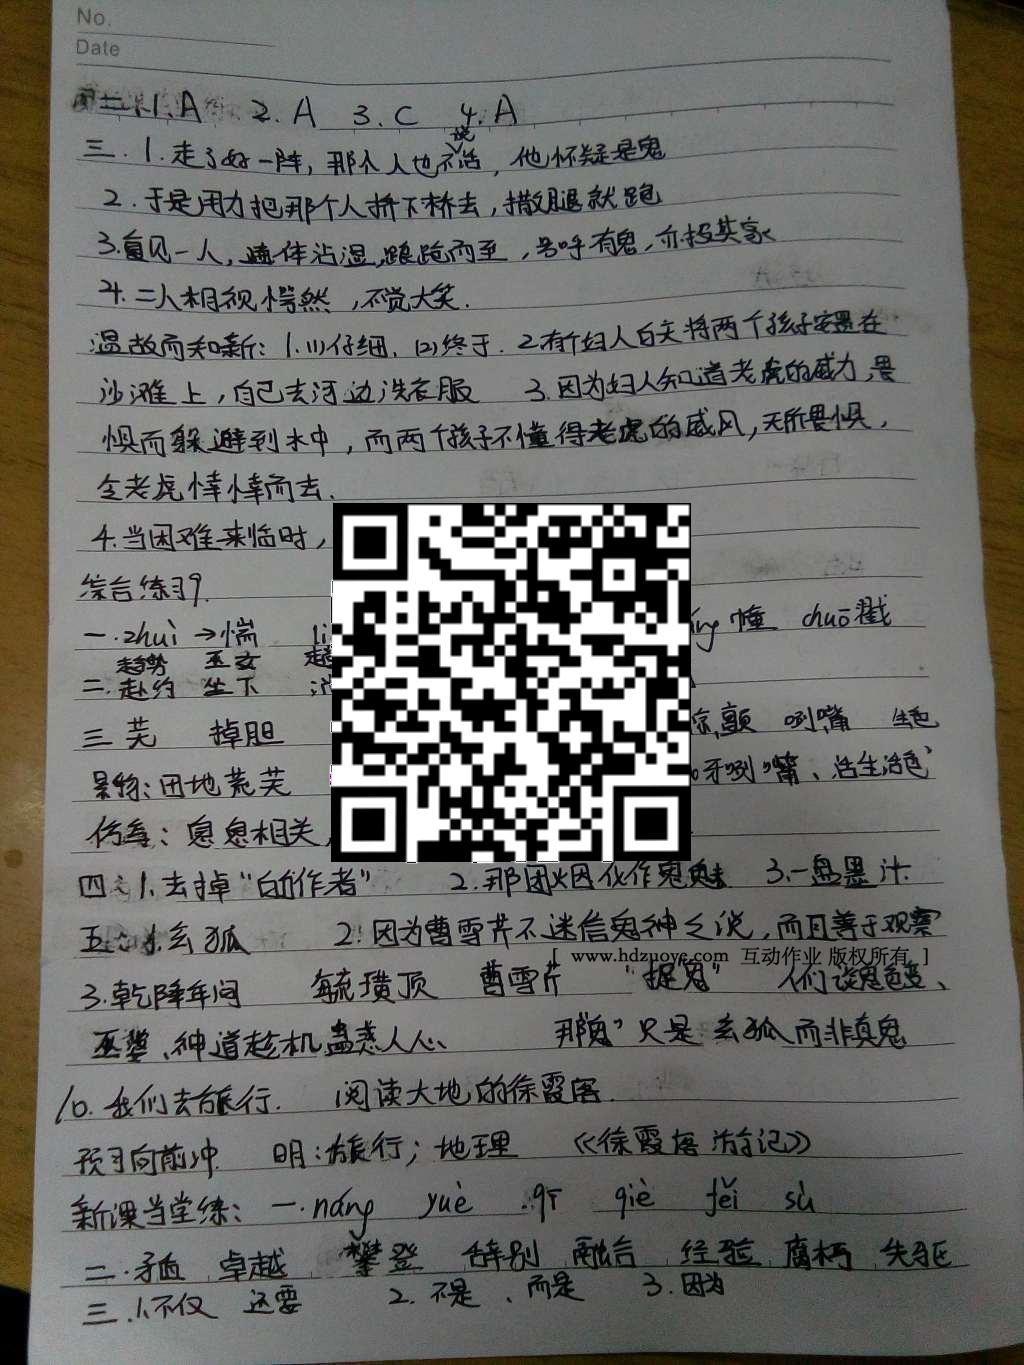 No.
Date
二.1.A 2.A 3.C 4.A
三.1.走了好一阵,那个人也不说话,他怀疑是鬼
2.于是用力把那个人挤下桥去,撒腿就跑
3.复见一人,遍体沾湿,踉跄而至,号呼有鬼,亦投其家
4.二人相视愕然,不觉大笑.
温故而知新:1.(1)仔细.(2)终于.2.有个妇人白天将两个孩子安置在
沙滩上,自己去河边洗衣服 3.因为妇人知道老虎的威力,畏
惧而躲避到水中,而两个孩子不懂得老虎的威风,无所畏惧,
令老虎悻悻而去.
4.当困难来临时,
综合练习9.
一.zhuì→惴 li 憧 chuō戳
趋势 巫女
二.赴约 坐下
三 芜 掉胆 颤 咧嘴 生色
景物:田地荒芜 牙"咧"嘴、活生活色
息息相关,
四:1.去掉"的作者" 2.那团烟伙作鬼魅 3.一盘墨汁
五:1.玄狐 2.因为曹雪芹不迷信鬼神之说,而且善于观察
[ www.hdzuoye.com 互动作业 版权所有 ]
3.乾隆年间 毓璜顶 曹雪芹 "捉鬼" 人们谈鬼色变、
巫婆、神道趁机蛊惑人心 那"鬼"只是玄狐而非真鬼
10.我们去旅行. 阅读大地的徐霞客.
预习向前冲 明:旅行;地理 《徐霞客游记》
新课当堂练:一.náng yuè qī qiè fěi sù
二.矛盾 卓越 攀登 特别 融合 经验 腐朽 失死
三.1.不仅 还要 2.不是、而是 3.因为